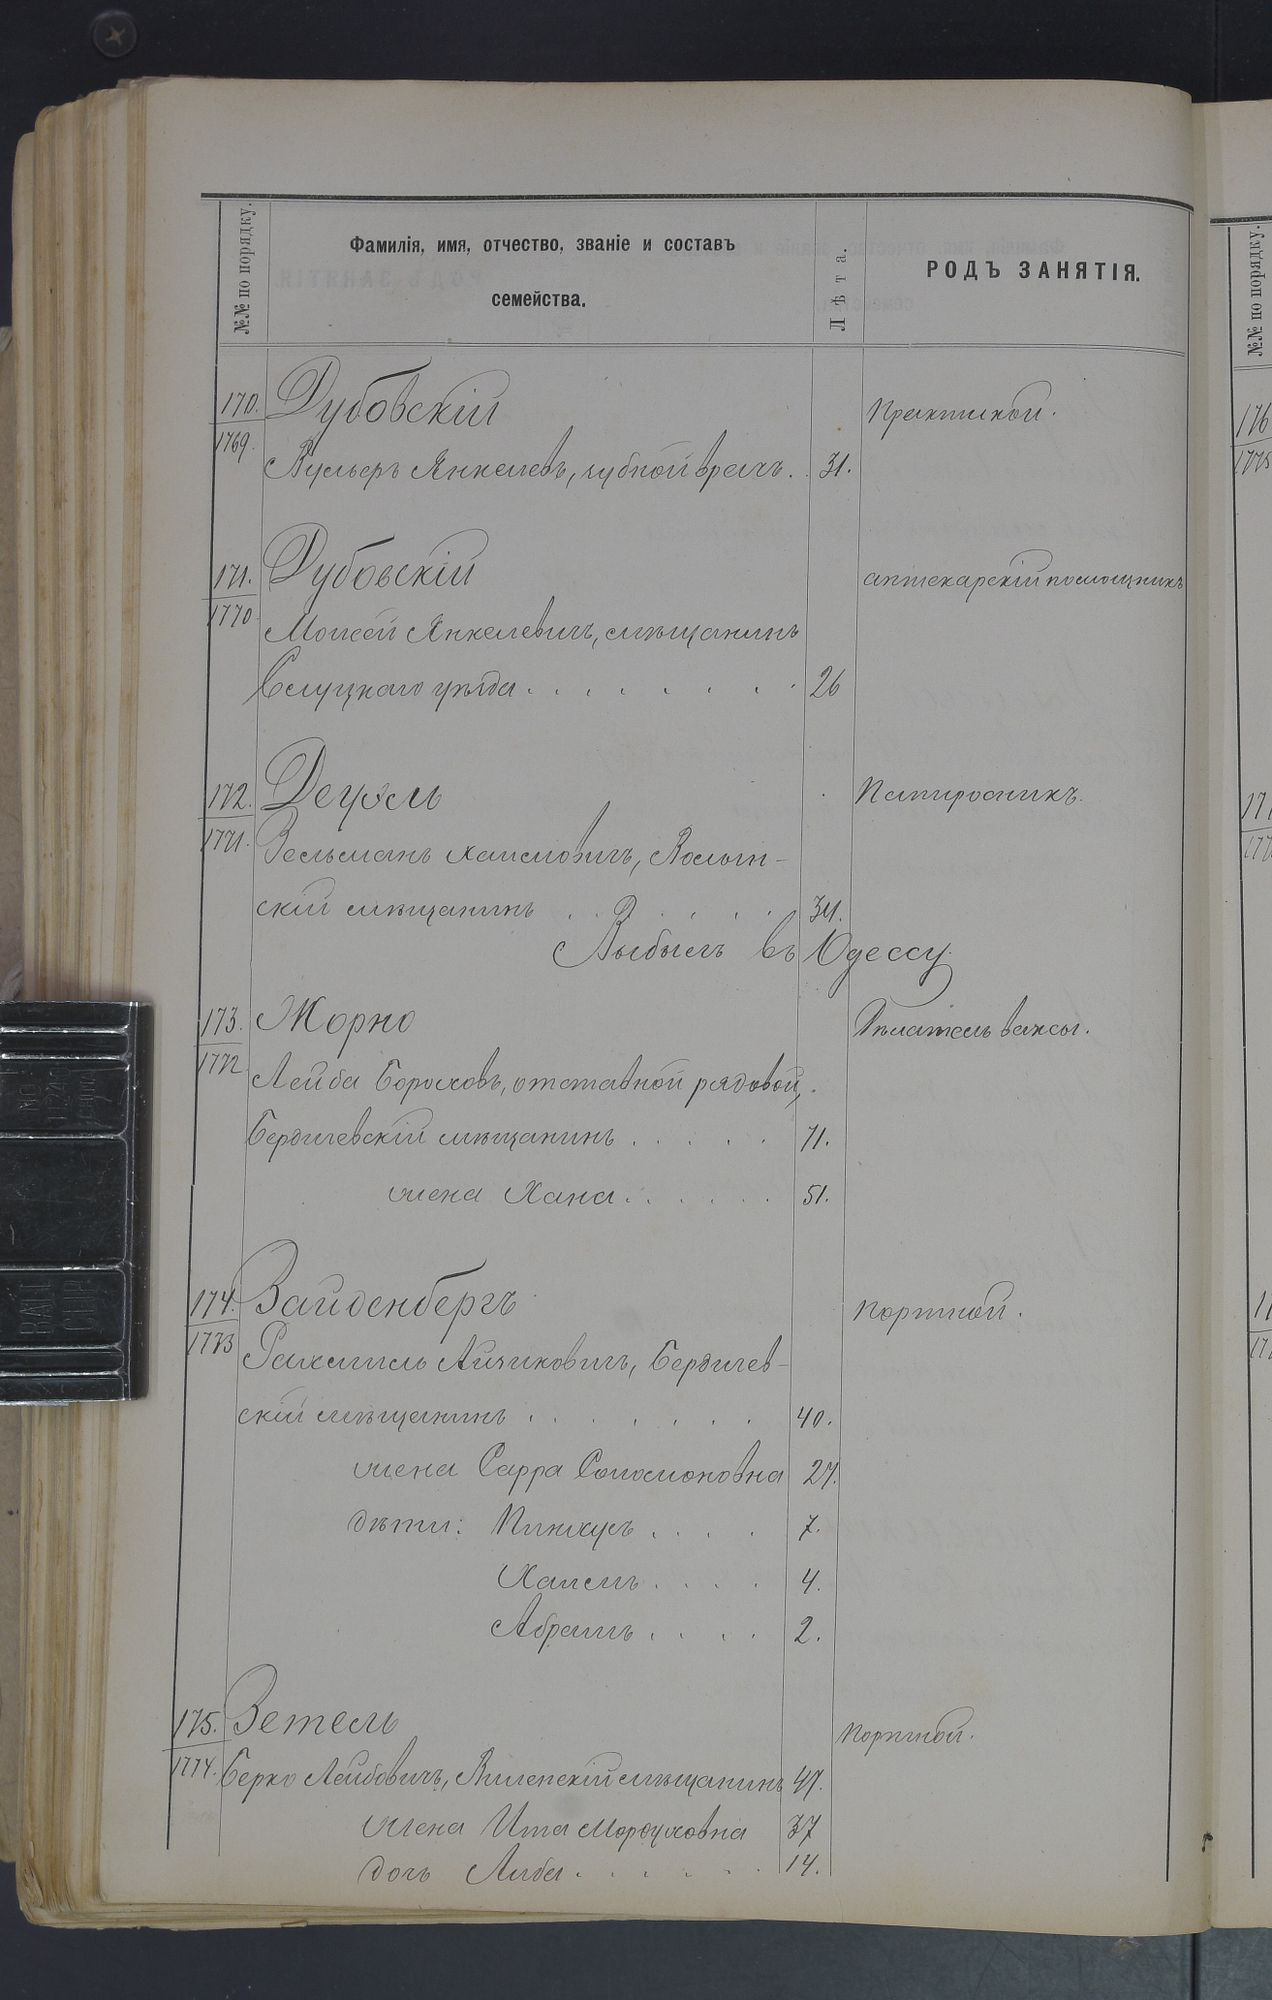 №№ по порядку.
Фамилія, имя, отчество, званіе и составъ
семейства.
Лѣта.
РОДЪ ЗАНЯТІЯ.
170. Дубовскій Практикой.
1769. Вульфъ Янкелевъ, зубной врачъ. . 31.
171. Дубовскій аптекарскій помощникъ
1770 Мойсей Янкелевичъ, мѣщанинъ
Слуцкаго уѣзда . . . . . . . . 26
172. Деуэль Папиросникъ.
1771. Зельманъ Хаимовичъ, Волын-
скій мѣщанинъ . . . . . . 34.
Выбылъ въ Одессу
173. Жорно Дѣлатель ваксы.
1772 Лейба Бороховъ, отставной рядовой,
Бердичевскій мѣщанинъ . . . . . 71.
жена Хана . . . . . . 51.
174. Зайденбергъ Портной.
1773 Рахмиль Айзиковичъ, Бердичев-
скій мѣщанинъ . . . . . . . 40.
жена Сарра Соломоновна 27.
дѣти: Пинхусъ . . . . 7.
Хаимъ . . . . 4.
Абрамъ . . . . 2.
175. Зетель Портной.
1774. Берко Лейбовичъ, Виленскій мѣщанинъ 47.
жена Ита Мордуховна 37
дочь Либа . . . . . . 14.
№№ по порядку.
176
1775
NO
BALL
CLIP